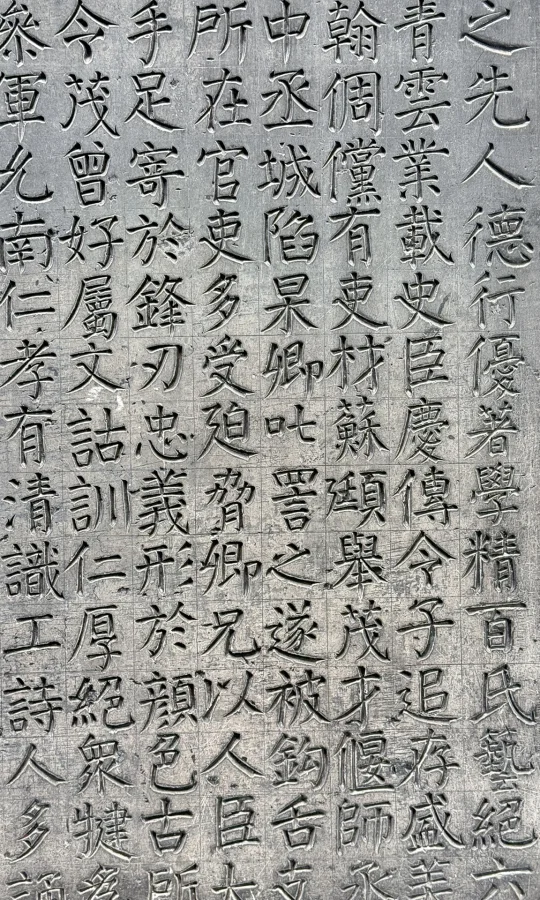 之先人德行優著學精百氏藝絕六
青雲業載史臣慶傳令子追存盛美
翰倜儻有吏材蘇頲舉茂才偃師丞
中丞城陷杲卿叱詈之遂被鈎舌支
所在官吏多受廹脅卿兄以人臣大
手足寄於鋒刃忠義形於顔色古所
令茂曾好屬文詁訓仁厚絕衆犍爲
參軍允南仁孝有清識工詩人多誦